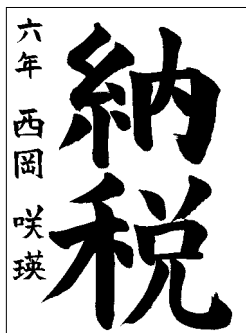 納税
六年 西岡 咲瑛